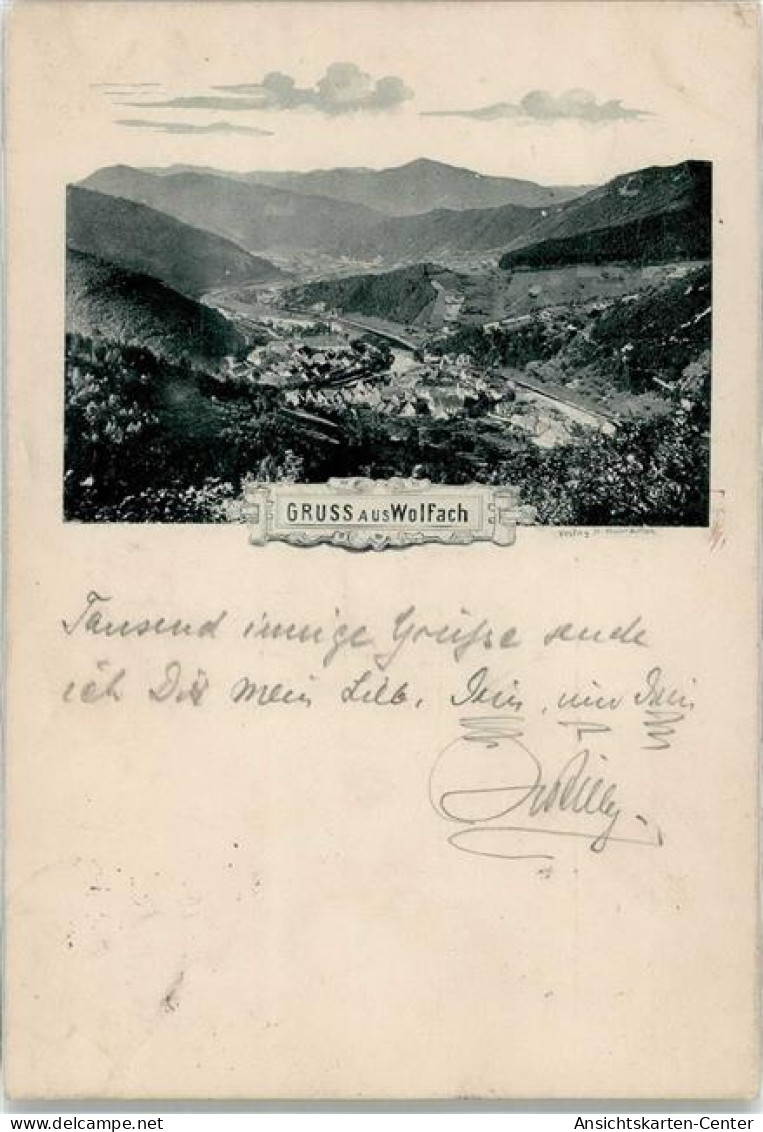 GRUSS AUS WOLFACH
Tausend innige Grüße sende
ich Dir mein Lieb, Dein, nur Dein
Willy.
delcampe.net
Ansichtskarten-Center